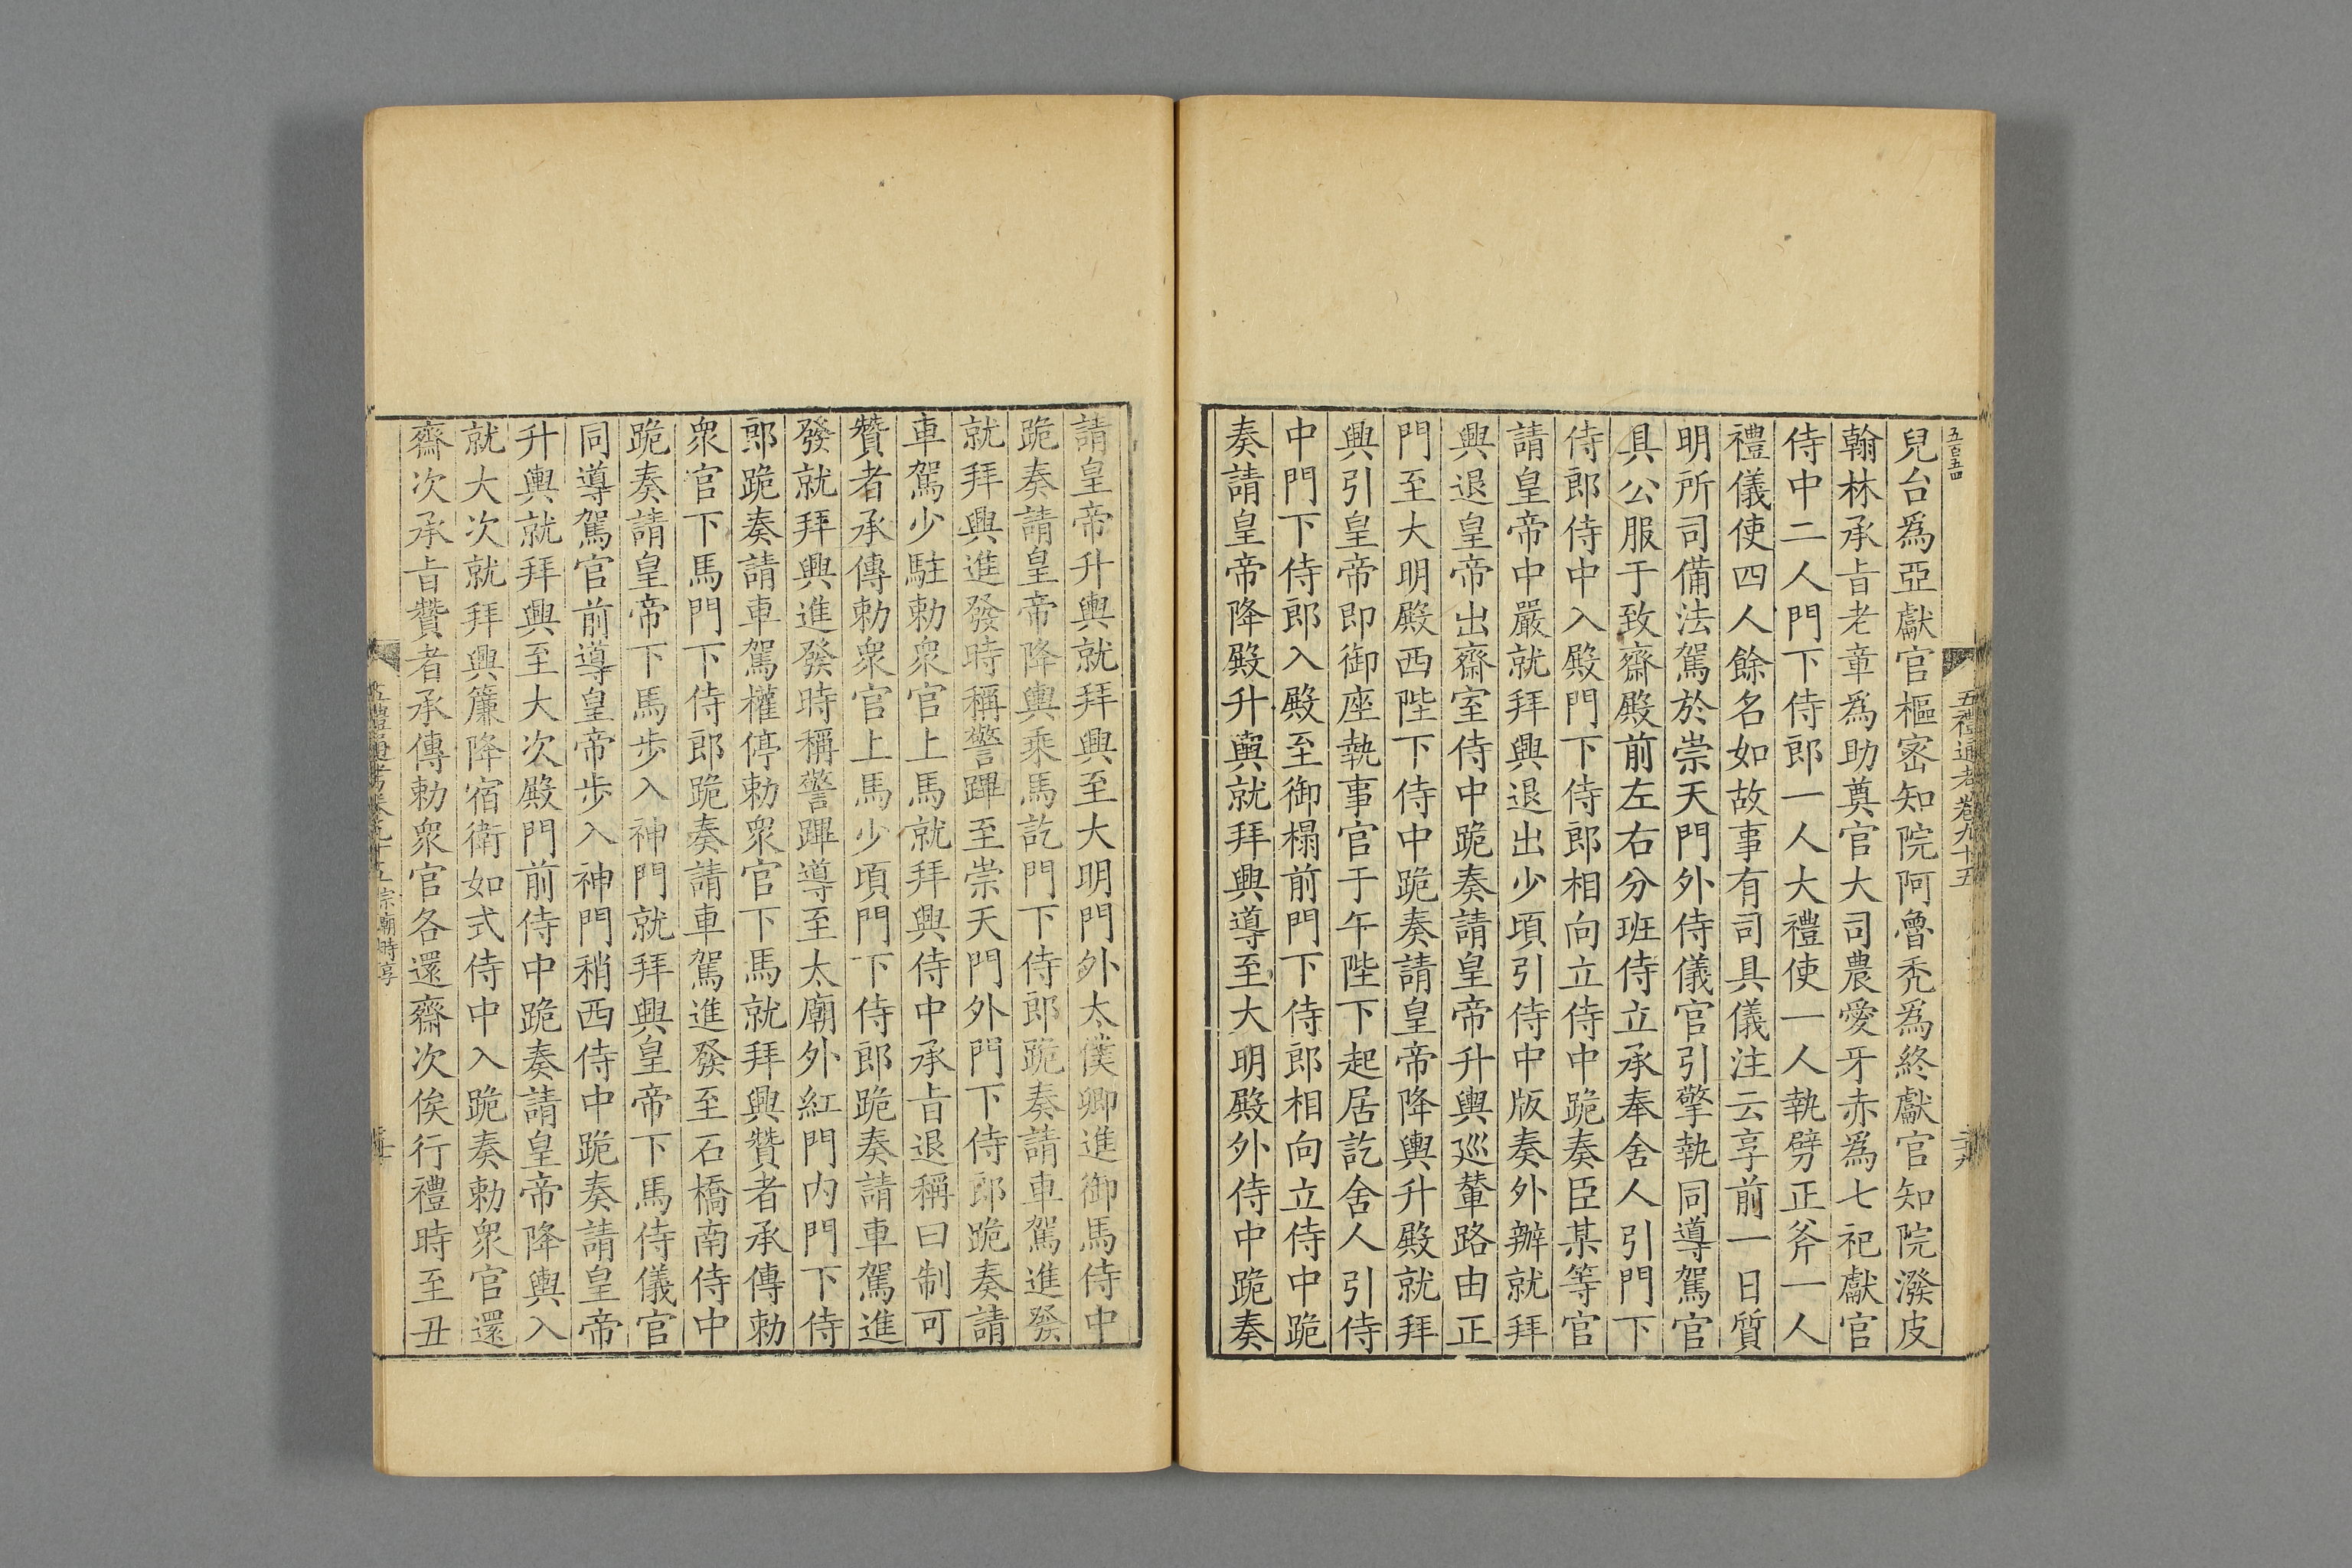 五百五四
五禮通考卷九十五
兒台爲亞獻官樞密知院阿魯禿爲終獻官知院潑皮
翰林承旨老章爲助奠官大司農愛牙赤爲七祀獻官
侍中二人門下侍郎一人大禮使一人執劈正斧一人
禮儀使四人餘名如故事有司具儀注云享前一日質
明所司備法駕於崇天門外侍儀官引擎執同導駕官
具公服于致齋殿前左右分班侍立承奉舍人引門下
侍郎侍中入殿門下侍郎相向立侍中跪奏臣某等官
請皇帝中嚴就拜興退出少頃引侍中版奏外辦就拜
興退皇帝出齋室侍中跪奏請皇帝升輿巡輦路由正
門至大明殿西陛下侍中跪奏請皇帝降輿升殿就拜
興引皇帝即御座執事官于午陛下起居訖舍人引侍
中門下侍郎入殿至御榻前門下侍郎相向立侍中跪
奏請皇帝降殿升輿就拜興導至大明殿外侍中跪奏
請皇帝升輿就拜興至大明門外太僕卿進御馬侍中
跪奏請皇帝降輿乘馬訖門下侍郎跪奏請車駕進發
就拜興進發時稱警蹕至崇天門外門下侍郎跪奏請
車駕少駐勅衆官上馬就拜興侍中承旨退稱曰制可
贊者承傳勅衆官上馬少頃門下侍郎跪奏請車駕進
發就拜興進發時稱警蹕導至太廟外紅門內門下侍
郎跪奏請車駕權停勅衆官下馬就拜興贊者承傳勅
衆官下馬門下侍郎跪奏請車駕進發至石橋南侍中
跪奏請皇帝下馬步入神門就拜興皇帝下馬侍儀官
同導駕官前導皇帝步入神門稍西侍中跪奏請皇帝
升輿就拜興至大次殿門前侍中跪奏請皇帝降輿入
就大次就拜興簾降宿衛如式侍中入跪奏勅衆官還
齋次承旨贊者承傳勅衆官各還齋次俟行禮時至丑
宗廟時享